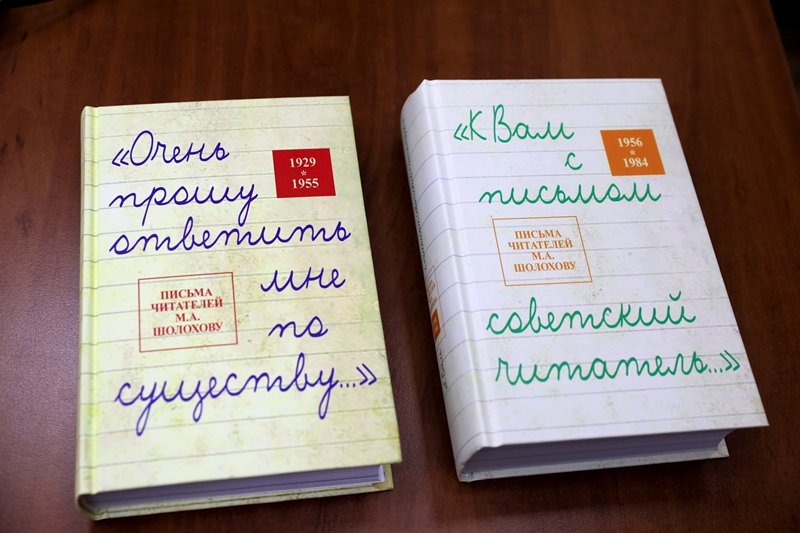 «Очень
прошу
ответить
мне
по
существу...»
1929
*
1955
ПИСЬМА
ЧИТАТЕЛЕЙ
М.А.
ШОЛОХОВУ
«К Вам
с
письмом
советский
читатель...»
1956
*
1984
ПИСЬМА
ЧИТАТЕЛЕЙ
М.А.
ШОЛОХОВУ